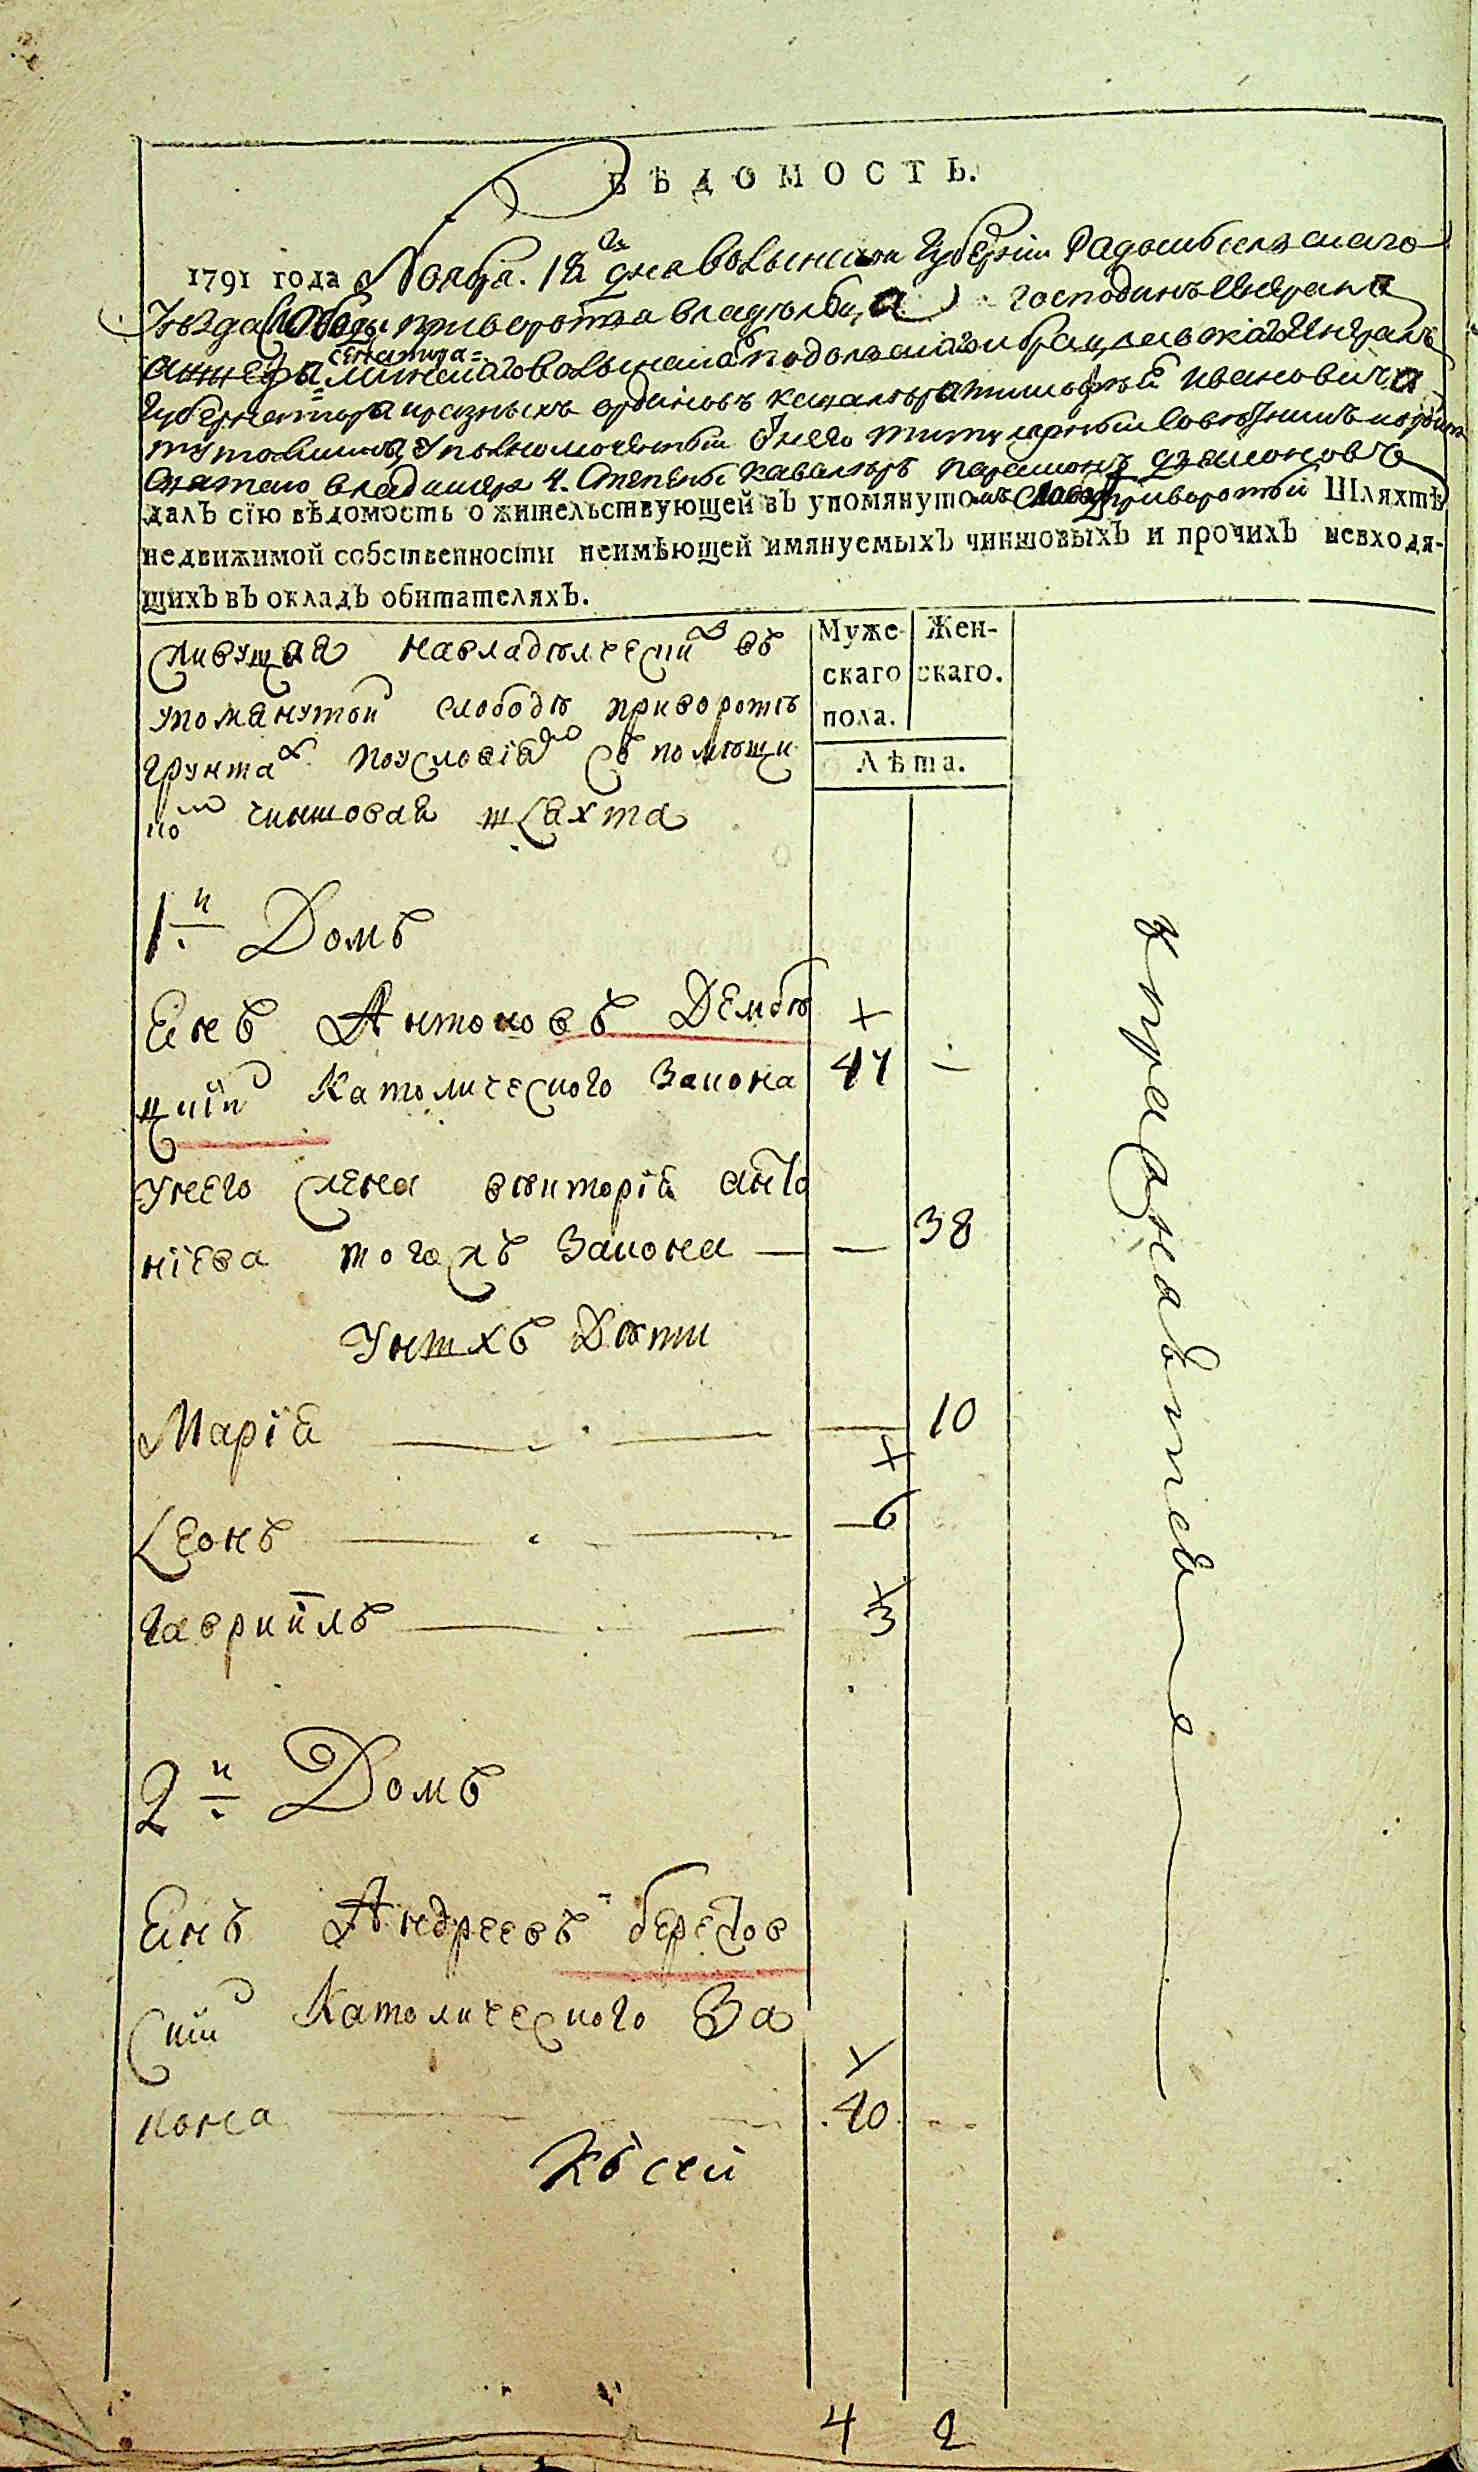 ВѢДОМОСТЬ.
1791 года Ноября. 18 дня волынской Губерніи Радомыслскаго
Уезда Слободы приворотья владѣлѣца господинъ Енерала
сенатора
волынскаго подолскаго и Енералъ
Губернатора и разныхъ ординовъ кавалера тимофѣй Ивановича
тутолмина, Уполномоченный Отнего титулярный Советникъ
Святаго владимера 4. Степени Кавалеръ парамонъ
далЪ сїю вѣдомость о жительствующей вЪ упомянутомъ Слободѣ приворотьи Шляхтѣ
недвижимой собственности неимѣющей имянуемыхЪ чиншовыхЪ и прочихЪ невходя-
щихЪ вЪ окладЪ обитателяхЪ.
Живущая навладѣлческий въ
упомянутой слободѣ приворотѣ
грунтах поусловія съ помѣщи
ко чиншовая шляхта
Муже-
скаго
пола.
Жен-
скаго.
Лѣта.
1й Домъ
Янъ Антоновъ Дембѣ
цкій Католического Закона 47 -
Унего жена викторія анто
ніева тогожъ Закона — — 38
Унихъ Дѣти
Марія — 10
Леонъ — 6
Гавриилъ — 3
2й Домъ
Янъ Андреевъ березов
ский Католического За
кона 40 -
Къ сей
4 2